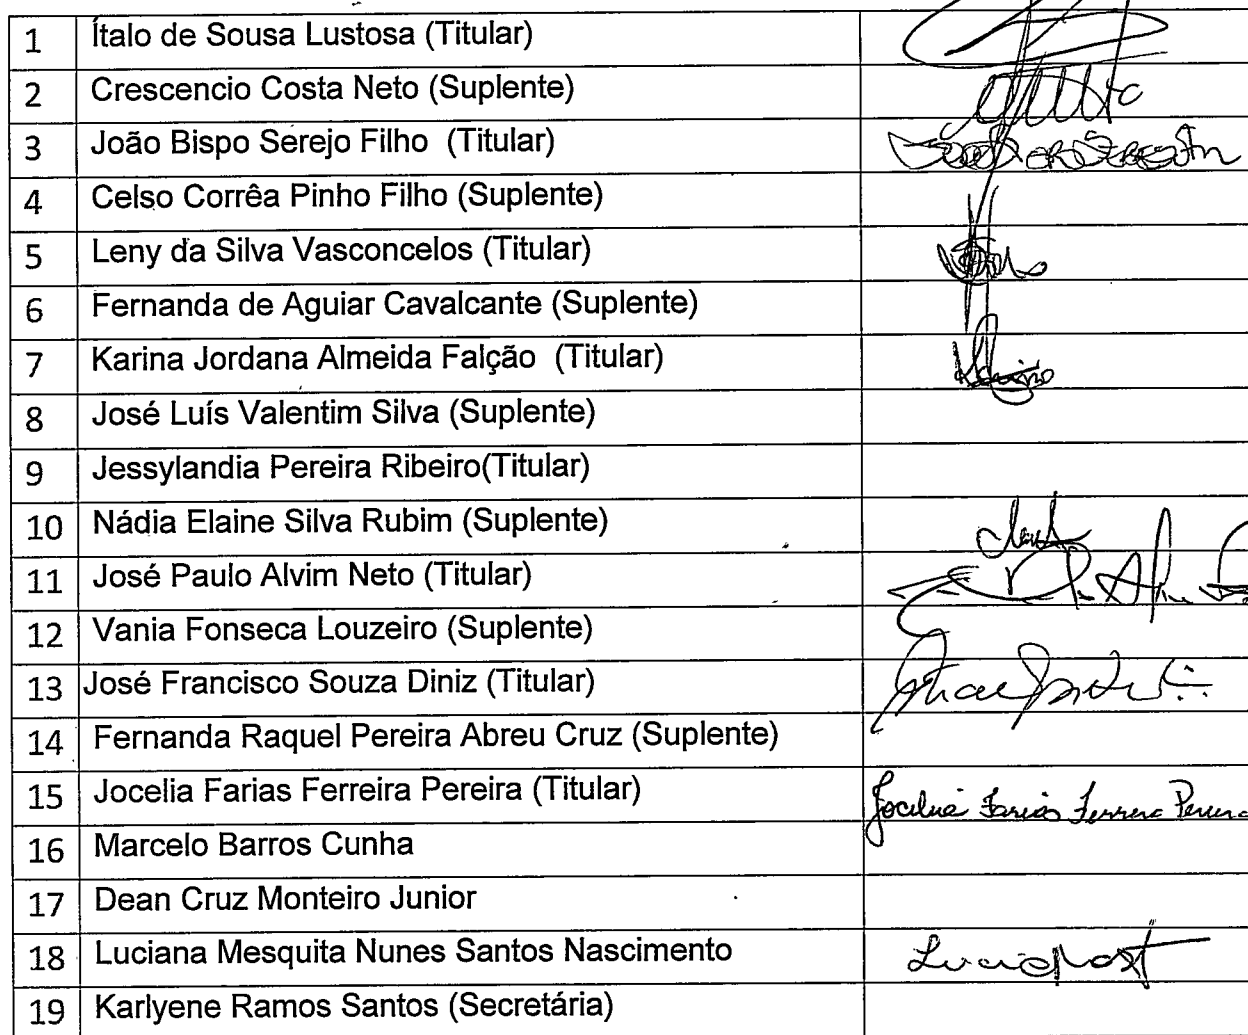 1 Ítalo de Sousa Lustosa (Titular)
2 Crescencio Costa Neto (Suplente)
3 João Bispo Serejo Filho (Titular)
4 Celso Corrêa Pinho Filho (Suplente)
5 Leny da Silva Vasconcelos (Titular)
6 Fernanda de Aguiar Cavalcante (Suplente)
7 Karina Jordana Almeida Falção (Titular)
8 José Luís Valentim Silva (Suplente)
9 Jessylandia Pereira Ribeiro(Titular)
10 Nádia Elaine Silva Rubim (Suplente)
11 José Paulo Alvim Neto (Titular)
12 Vania Fonseca Louzeiro (Suplente)
13 José Francisco Souza Diniz (Titular)
14 Fernanda Raquel Pereira Abreu Cruz (Suplente)
15 Jocelia Farias Ferreira Pereira (Titular) Jocelia Farias Ferreira Pereira
16 Marcelo Barros Cunha
17 Dean Cruz Monteiro Junior
18 Luciana Mesquita Nunes Santos Nascimento
19 Karlyene Ramos Santos (Secretária)